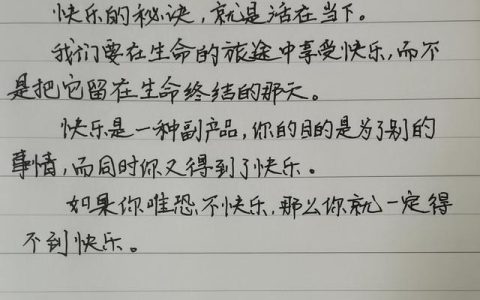 快乐的秘诀,就是活在当下。
我们要在生命的旅途中享受快乐,而不
是把它留在生命终结的那天。
快乐是一种副产品,你的目的是为了别的
事情,而同时你又得到了快乐。
如果你唯恐不快乐,那么你就一定得
不到快乐。